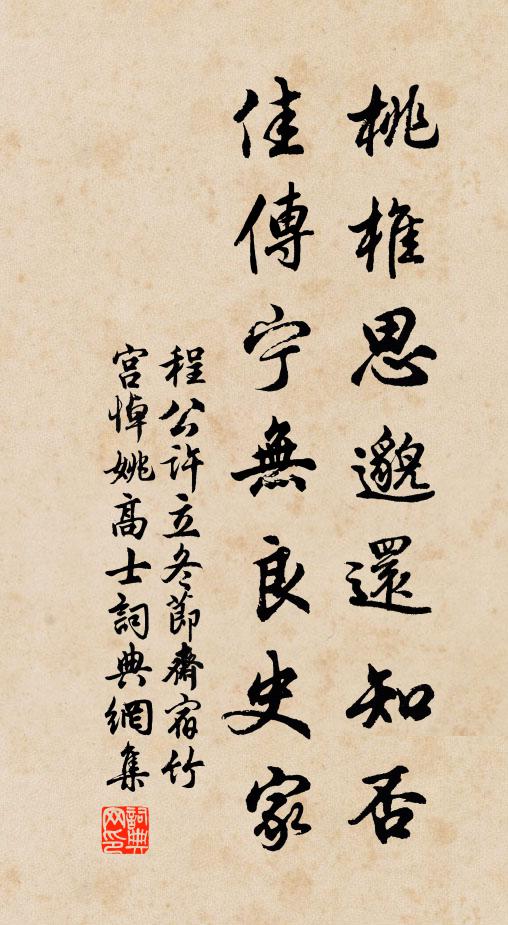 桃椎思邈還知否
佳傳宁無良史家
程公許立冬節齋宿竹
宫悼姚高士詞典網集
詞典网印